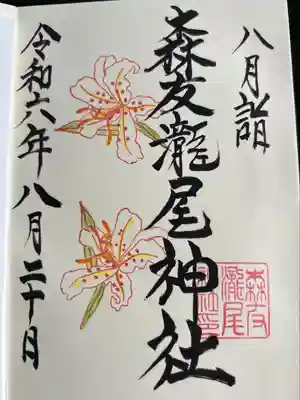 八月詣
森友瀧尾神社
森友
瀧尾
神社印
令和六年八月二十日